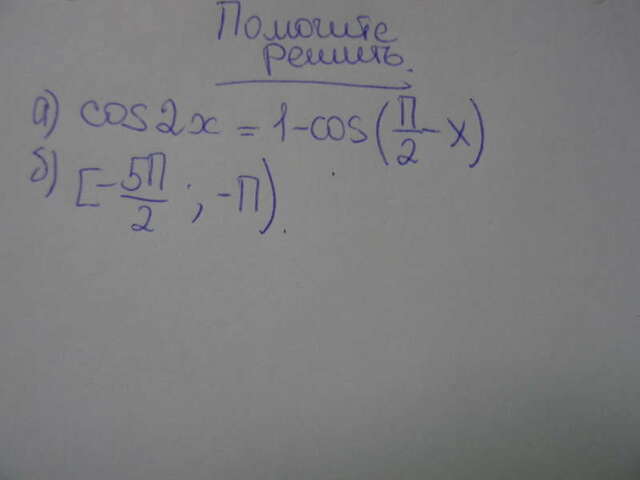 Помогите
решить.
а) cos2x = 1-cos(П/2 - x)
б) [-5П/2 ; -П).